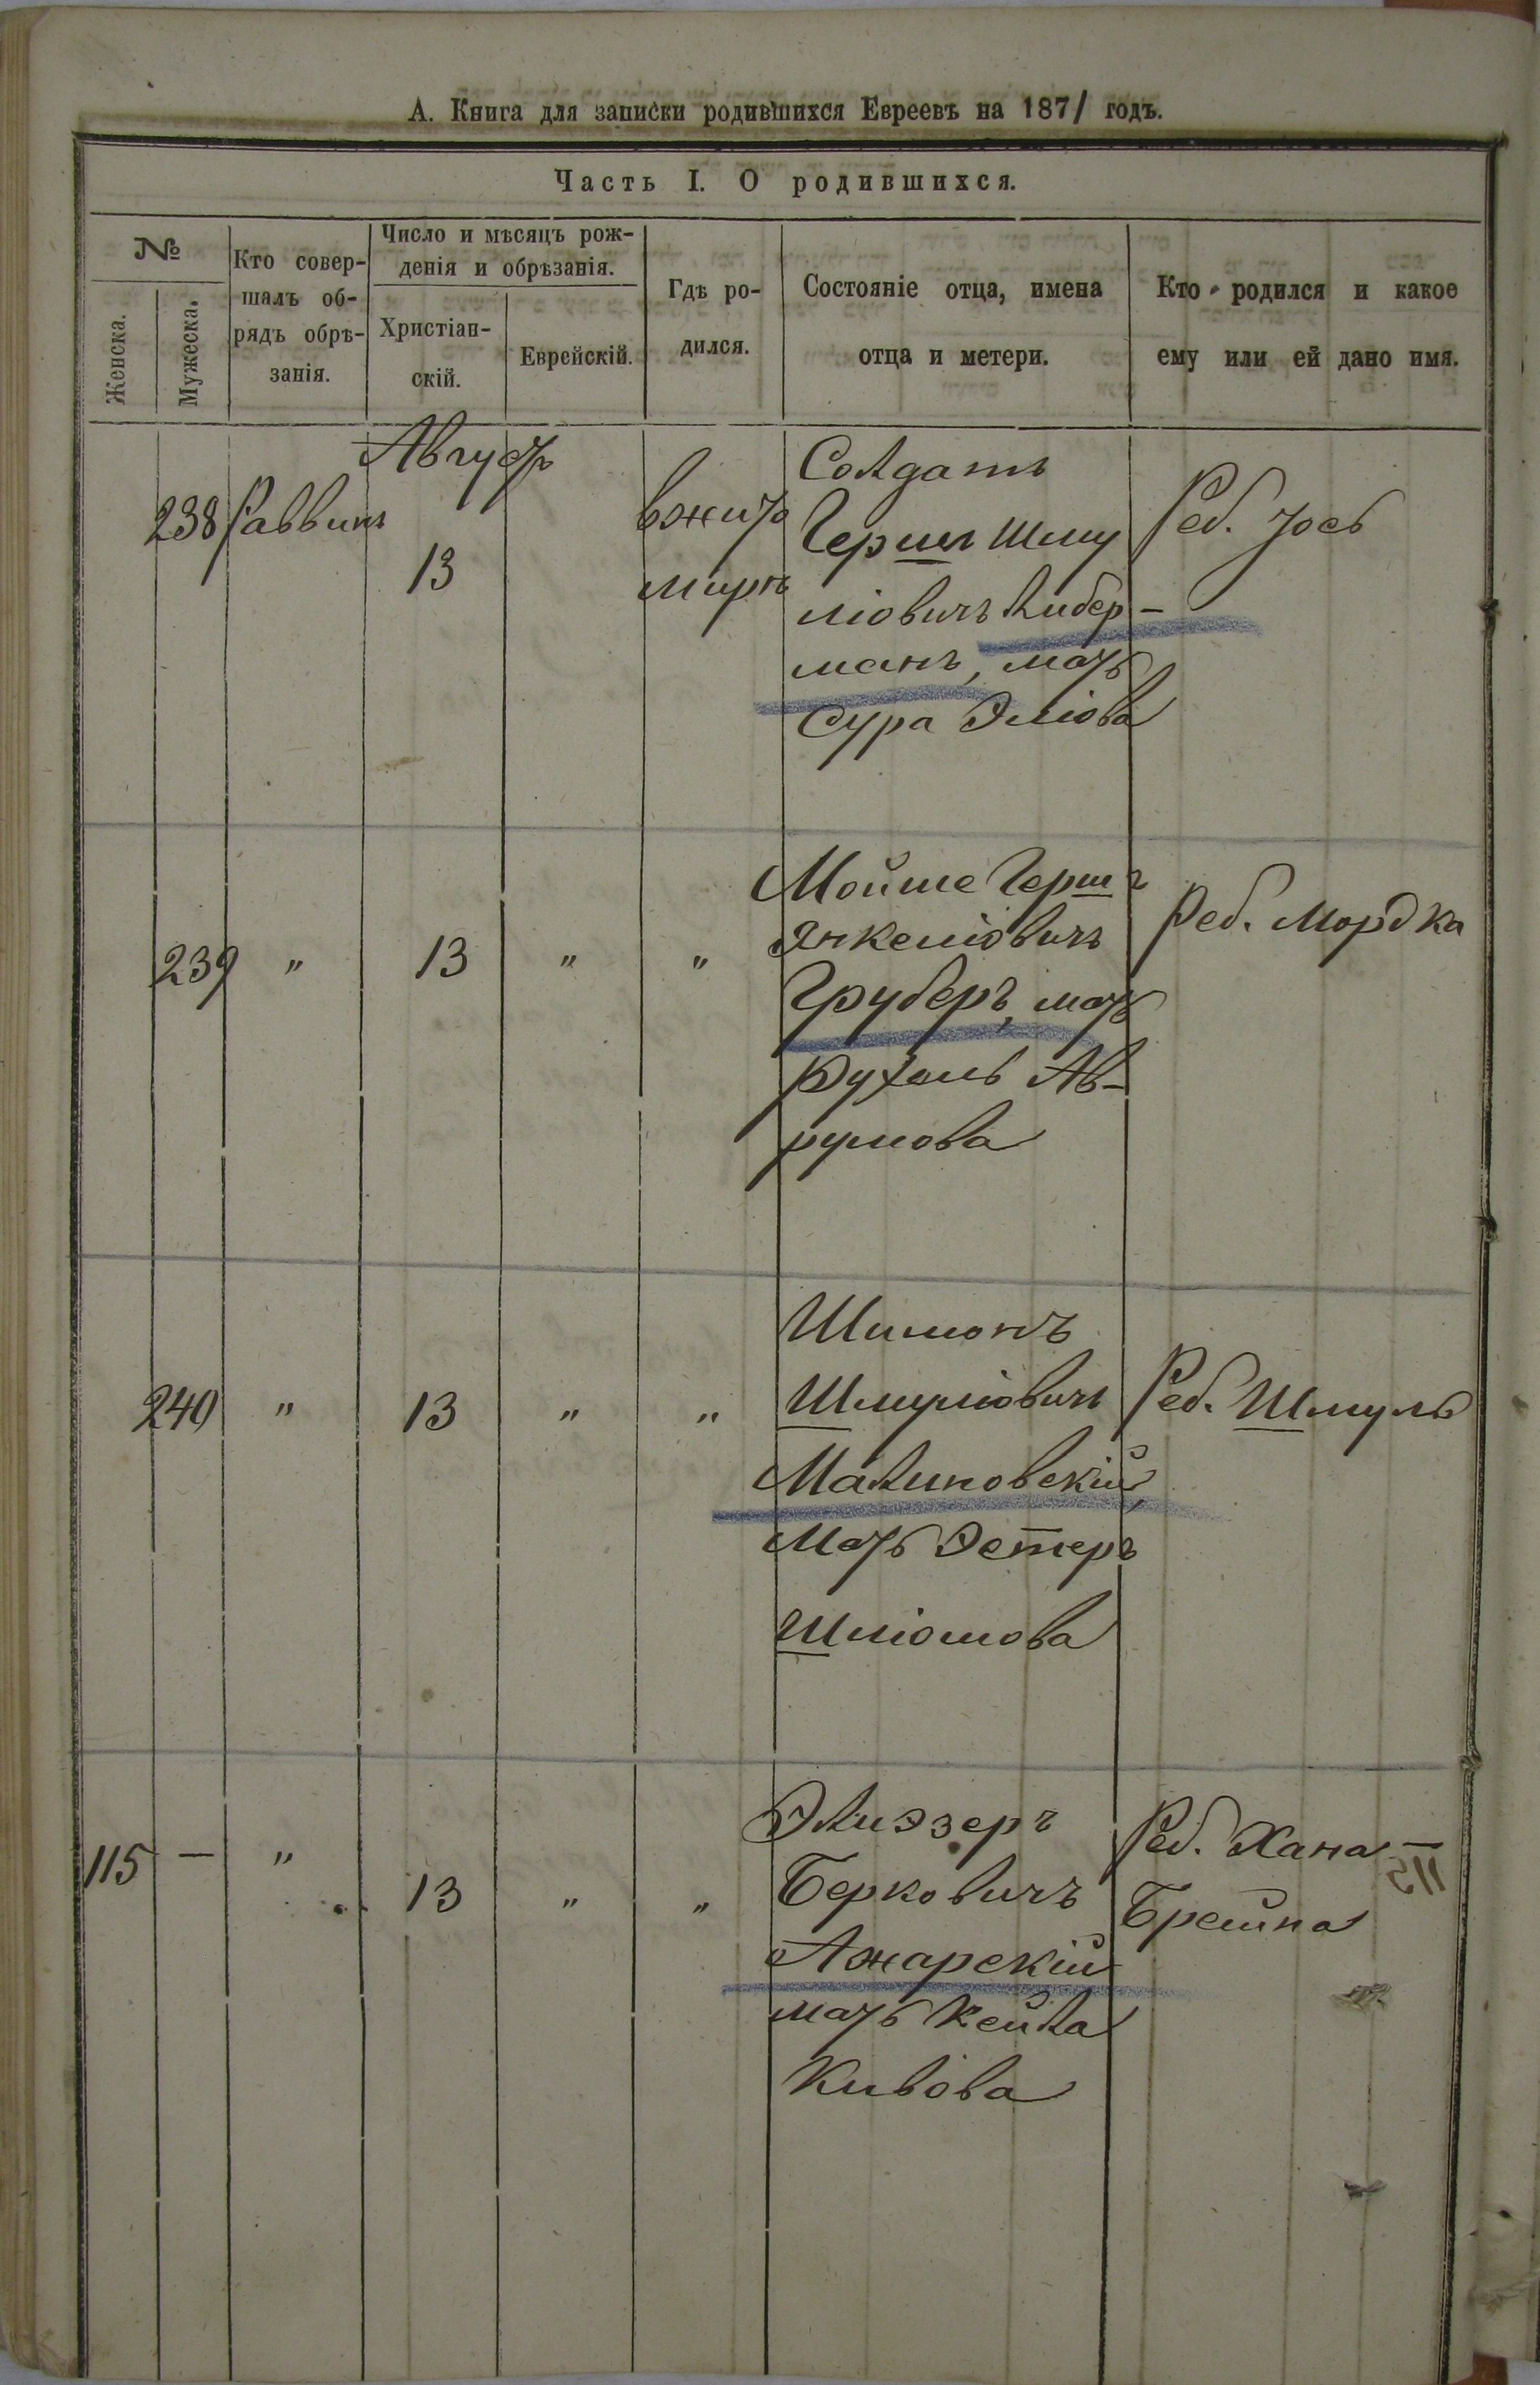 А. Книга для записки родившихся Евреевъ на 1871 годъ.
Часть I. О родившихся.
№
Женска.
Мужеска.
Кто совер-
шалъ об-
рядъ обрѣ-
занія.
Число и мѣсяцъ рож-
денія и обрѣзанія.
Христіан-
скій.
Еврейскій.
Гдѣ ро-
дился.
Состояніе отца, имена
отца и метери.
Кто родился и какое
ему или ей дано имя.
Августъ
238 Раввинъ
13
вжито
миръ
Солдатъ
Гершъ Шму
ліовичъ Либер-
манъ, мать
Сура Эліова
Реб. Іось
239 " 13 " "
Мойше Гершъ
Янкеліовичъ
Груберъ, мать
Рухель Ав-
румова
Реб. Мордка
240 " 13 " "
Шимонъ
Шмуліовичъ
Малиновскій,
мать Эстеръ
Шліомова
Реб. Шмуль
115 — " 13 " "
Элиэзеръ
Берковичъ
Ажарскій
мать Кейла
Кивова
Реб. Хана-
Брейна
115